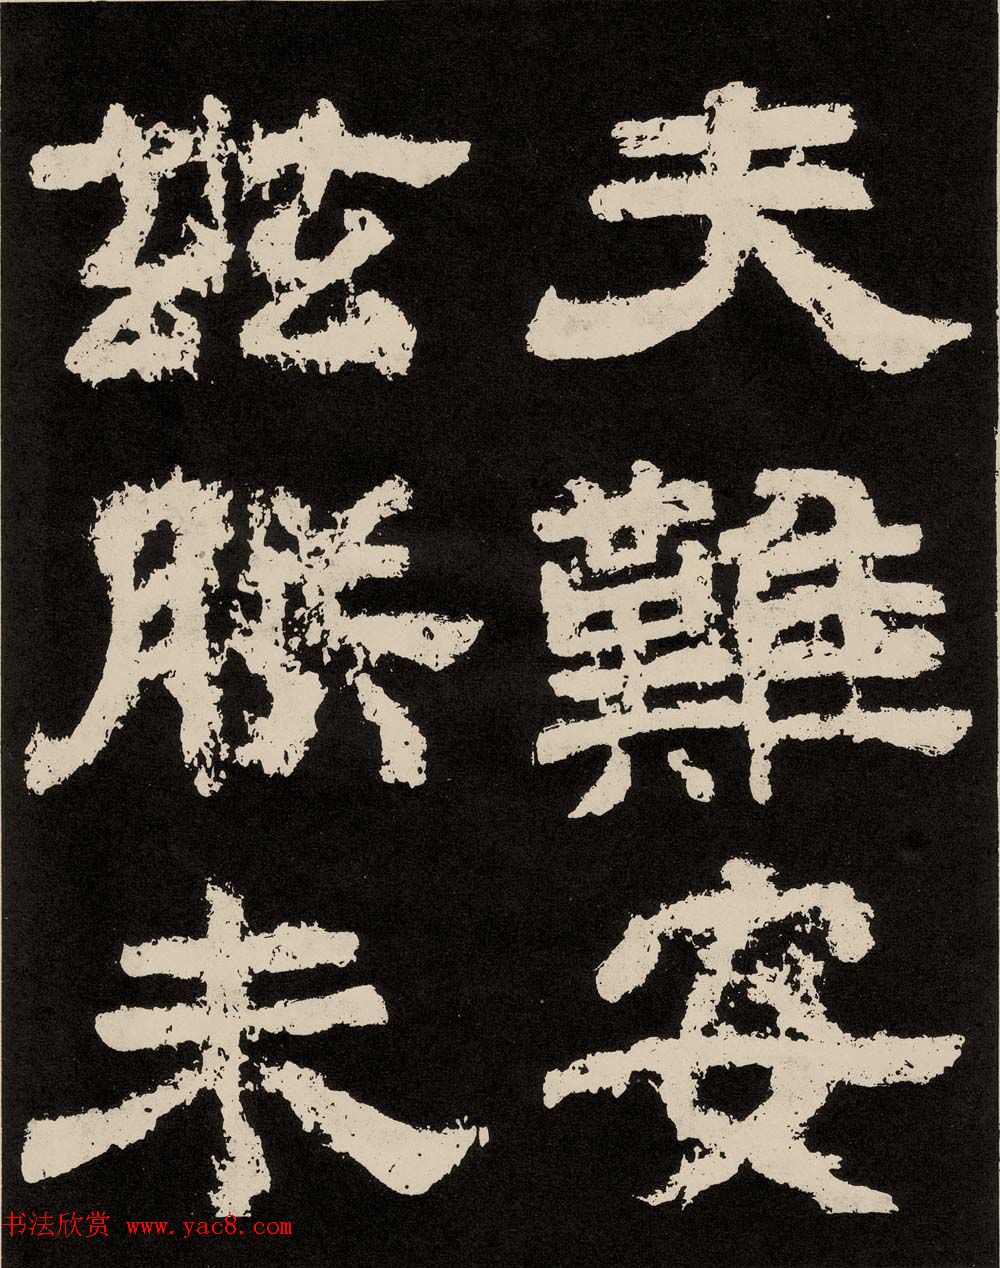 夫難安
玆朕未
书法欣赏 www.yac8.com